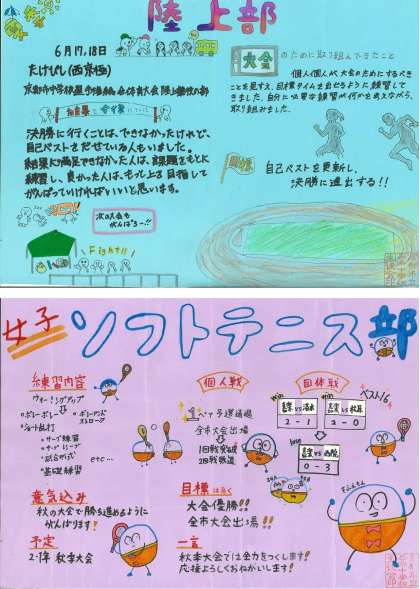 陸上部
6月17,18日
たけびし(西京極)
結果と今後について
決勝に行くことは、できなかったけれど、
自己ベストをだせている人もいました。
結果に満足できなかった人は、課題をもとに
練習し、良かった人は、もっと上を目指して
がんばっていければいいと思います。
次の大会も
がんばろー!!
Fight!!
大会のために取り組んできたこと
個人個人が大会のためにするべき
ことを見すえ、目標タイムを出せるように練習して
きました。自分に必要な練習が何かを考えながら、
取り組みました。
目標
自己ベストを更新し、
決勝に進出する!!
女子ソフトテニス部
練習内容
ウォーミングアップ
ボレーボレー
ボレーアンド
ストローク
ショート乱打
・サーブ練習
・サーブレシーブ
・試合形式
・基礎練習
etc…
意気込み
秋の大会で勝ち進めるように
がんばります!
予定
2・1年 秋季大会
個人戦
全市大会出場
1回戦突破
2回戦敗退
目標は高く
大会優勝!!
全市大会出場!!
一言
秋季大会では全力をつくします!
応援よろしくおねがいします!
団体戦
ベスト16
win
2-1
win
2-0
lose
0-3